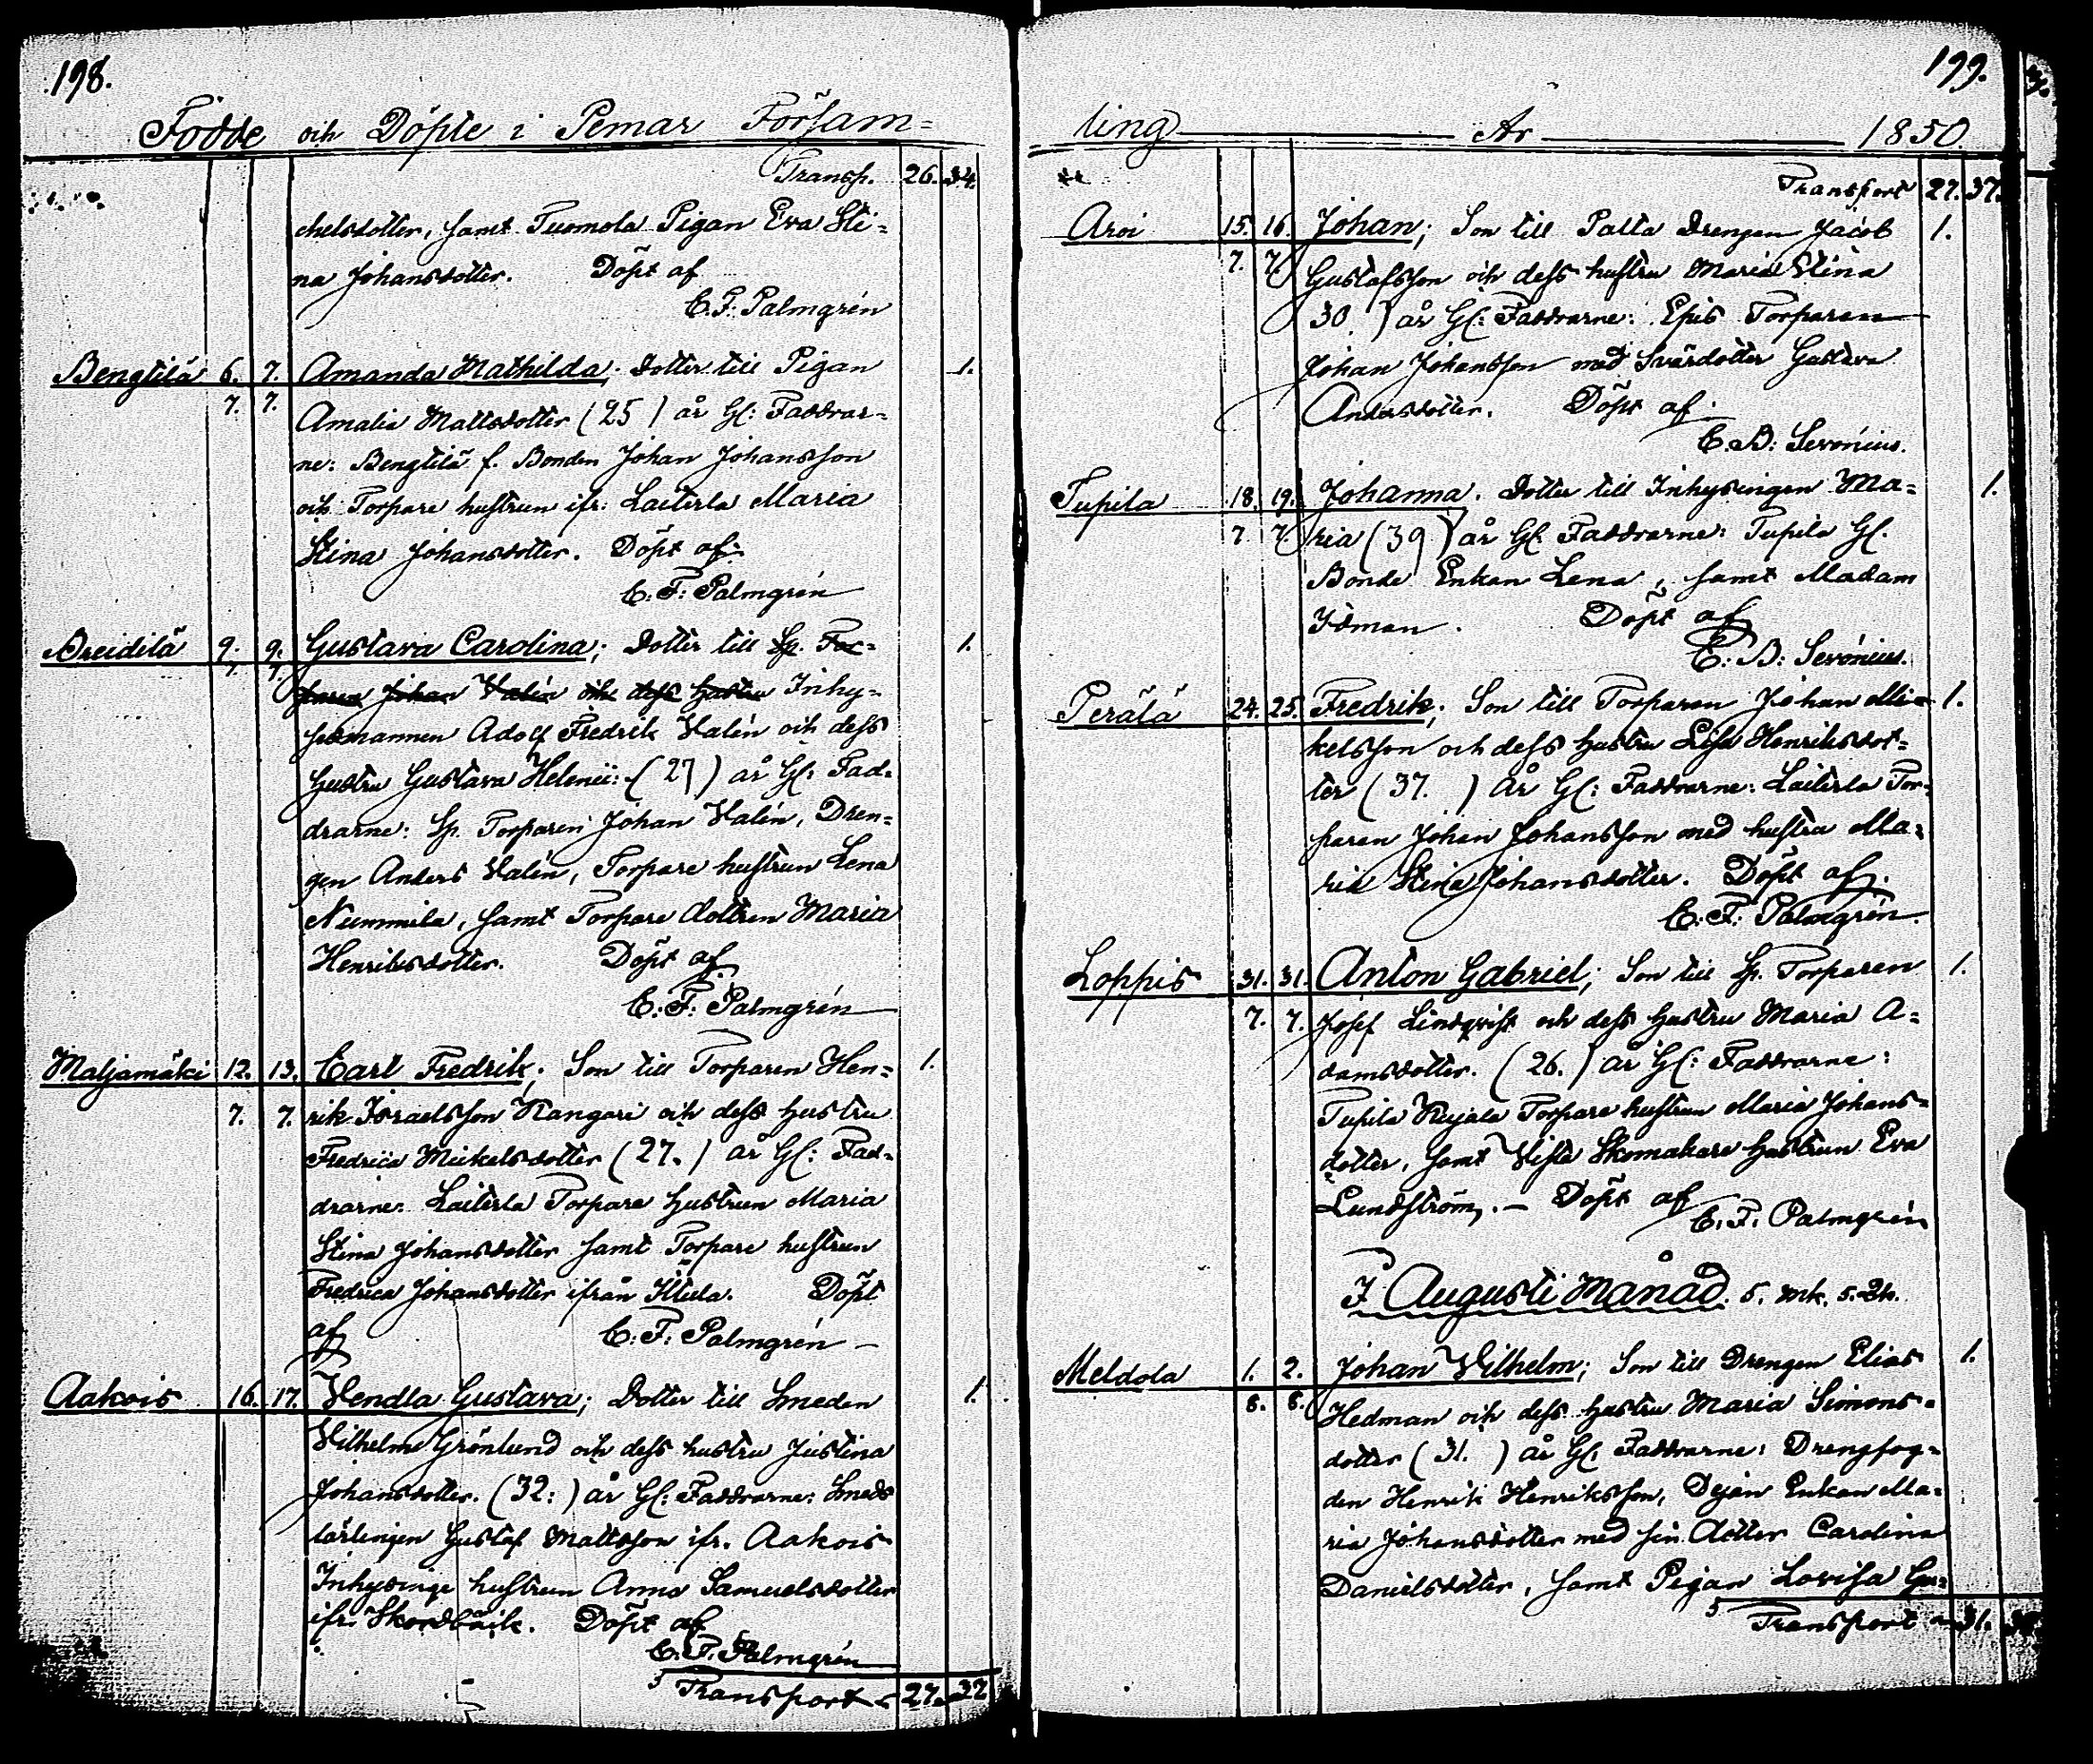 198.
Födde och Döpte i Pemar Försam=
Transp. 26. 34.
chelsdotter, samt Tuomola Pigan Eva Sti=
na Johansdotter. Döpt af
C. F: Palmgrén
Bengtilä 6. 7. Amanda Mathilda; Dotter till Pigan 1.
7. 7. Amalia Mattsdotter (25) år Gl: Faddrar=
ne: Bengtilä f. Bonden Johan Johansson
och Torpare hustrun ifr: Laiterla Maria
Stina Johansdotter. Döpt af:
C: F: Palmgrén
Breidilä 9. 9. Gustava Carolina; Dotter till Sp. Tor= 1.
7. 7. paren Johan Valén och dess hustru Inhy=
sesmannen Adolf Fredrik Valén och dess
hustru Gustava Helenii: (27) år Gl: Fad=
drarne: Sp. Torparen Johan Valén, Dren=
gen Anders Valén, Torpare hustrun Lena
Nummila, samt Torpare dottren Maria
Henriksdotter. Döpt af
C: F: Palmgrén
Maljamäki 12. 13. Carl Fredrik; Son till Torparen Hen= 1.
7. 7. rik Israelsson Kangari och dess hustru
Fredrica Mickelsdotter (27.) år Gl: Fad=
drarne: Laiterla Torpare hustrun Maria
Stina Johansdotter samt Torpare hustrun
Fredrica Johansdotter ifrån Döpt
af C: F: Palmgrén
Aakois 16. 17. Vendla Gustava; Dotter till Smeden 1.
Vilhelm Grönlund och dess hustru Justina
Johansdotter. (32:) år Gl: Faddrarne: Smeds
lärlingen Gustaf Mattsson ifr. Aakois
Inhysinge hustrun Anna Samuelsdotter
ifr. Döpt af
C. F. Palmgrén
5 Transport 27. 37
199.
ling År 1850.
Transport 27. 37.
Aroi 15. 16. Johan; Son till Patta Drengen Jacob 1.
7. 7. Gustafsson och dess hustru Maria Stina
30 ) år Gl: Faddrarne: Epis Torparen
Johan Johansson med Svärdotter Gustava
Andersdotter. Döpt af:
C. B: Severinius.
Tupila 18. 19. Johanna. Dotter till Inhysingen Ma= 1.
7. 7. ria (39) år Gl: Faddrarne: Tupila Gl.
Bonde Enkan Lena, samt Madam
Idman. Döpt af
C: B: Severinius.
Perälä 24. 25. Fredrik; Son till Torparen Johan Mic= 1.
kelsson och dess hustru Lisa Henriksdot=
ter (37. ) År Gl: Faddrarne: Laiterla Tor=
paren Johan Johansson med hustru Ma=
ria Stina Johansdotter. Döpt af:
C: F: Palmgrén
Loppis 31. 31. Anton Gabriel; Son till Sp. Torparen 1.
7. 7. Josef Lindqvist och dess hustru Maria A=
damsdotter. (26.) år Gl: Faddrarne:
Tupila Torpare hustrun Maria Johans=
dotter, samt Viste Skomakare hustrun Eva
Lundström. – Döpt af
C. F. Palmgrén
I Augusti Månad. 5. mk. 5. qk.
Meldola 1. 2. Johan Vilhelm; Son till Drengen Elias 1.
8. 8. Hedman och dess hustru Maria Simons=
dotter (31. ) år Gl: Faddrarne: Drengfog=
den Henrik Henriksson, Dejan Enkan Ma=
ria Johansdotter med sin dotter Carolina
Danielsdotter, samt Pigan Lovisa Gu=
5 Transport 31.